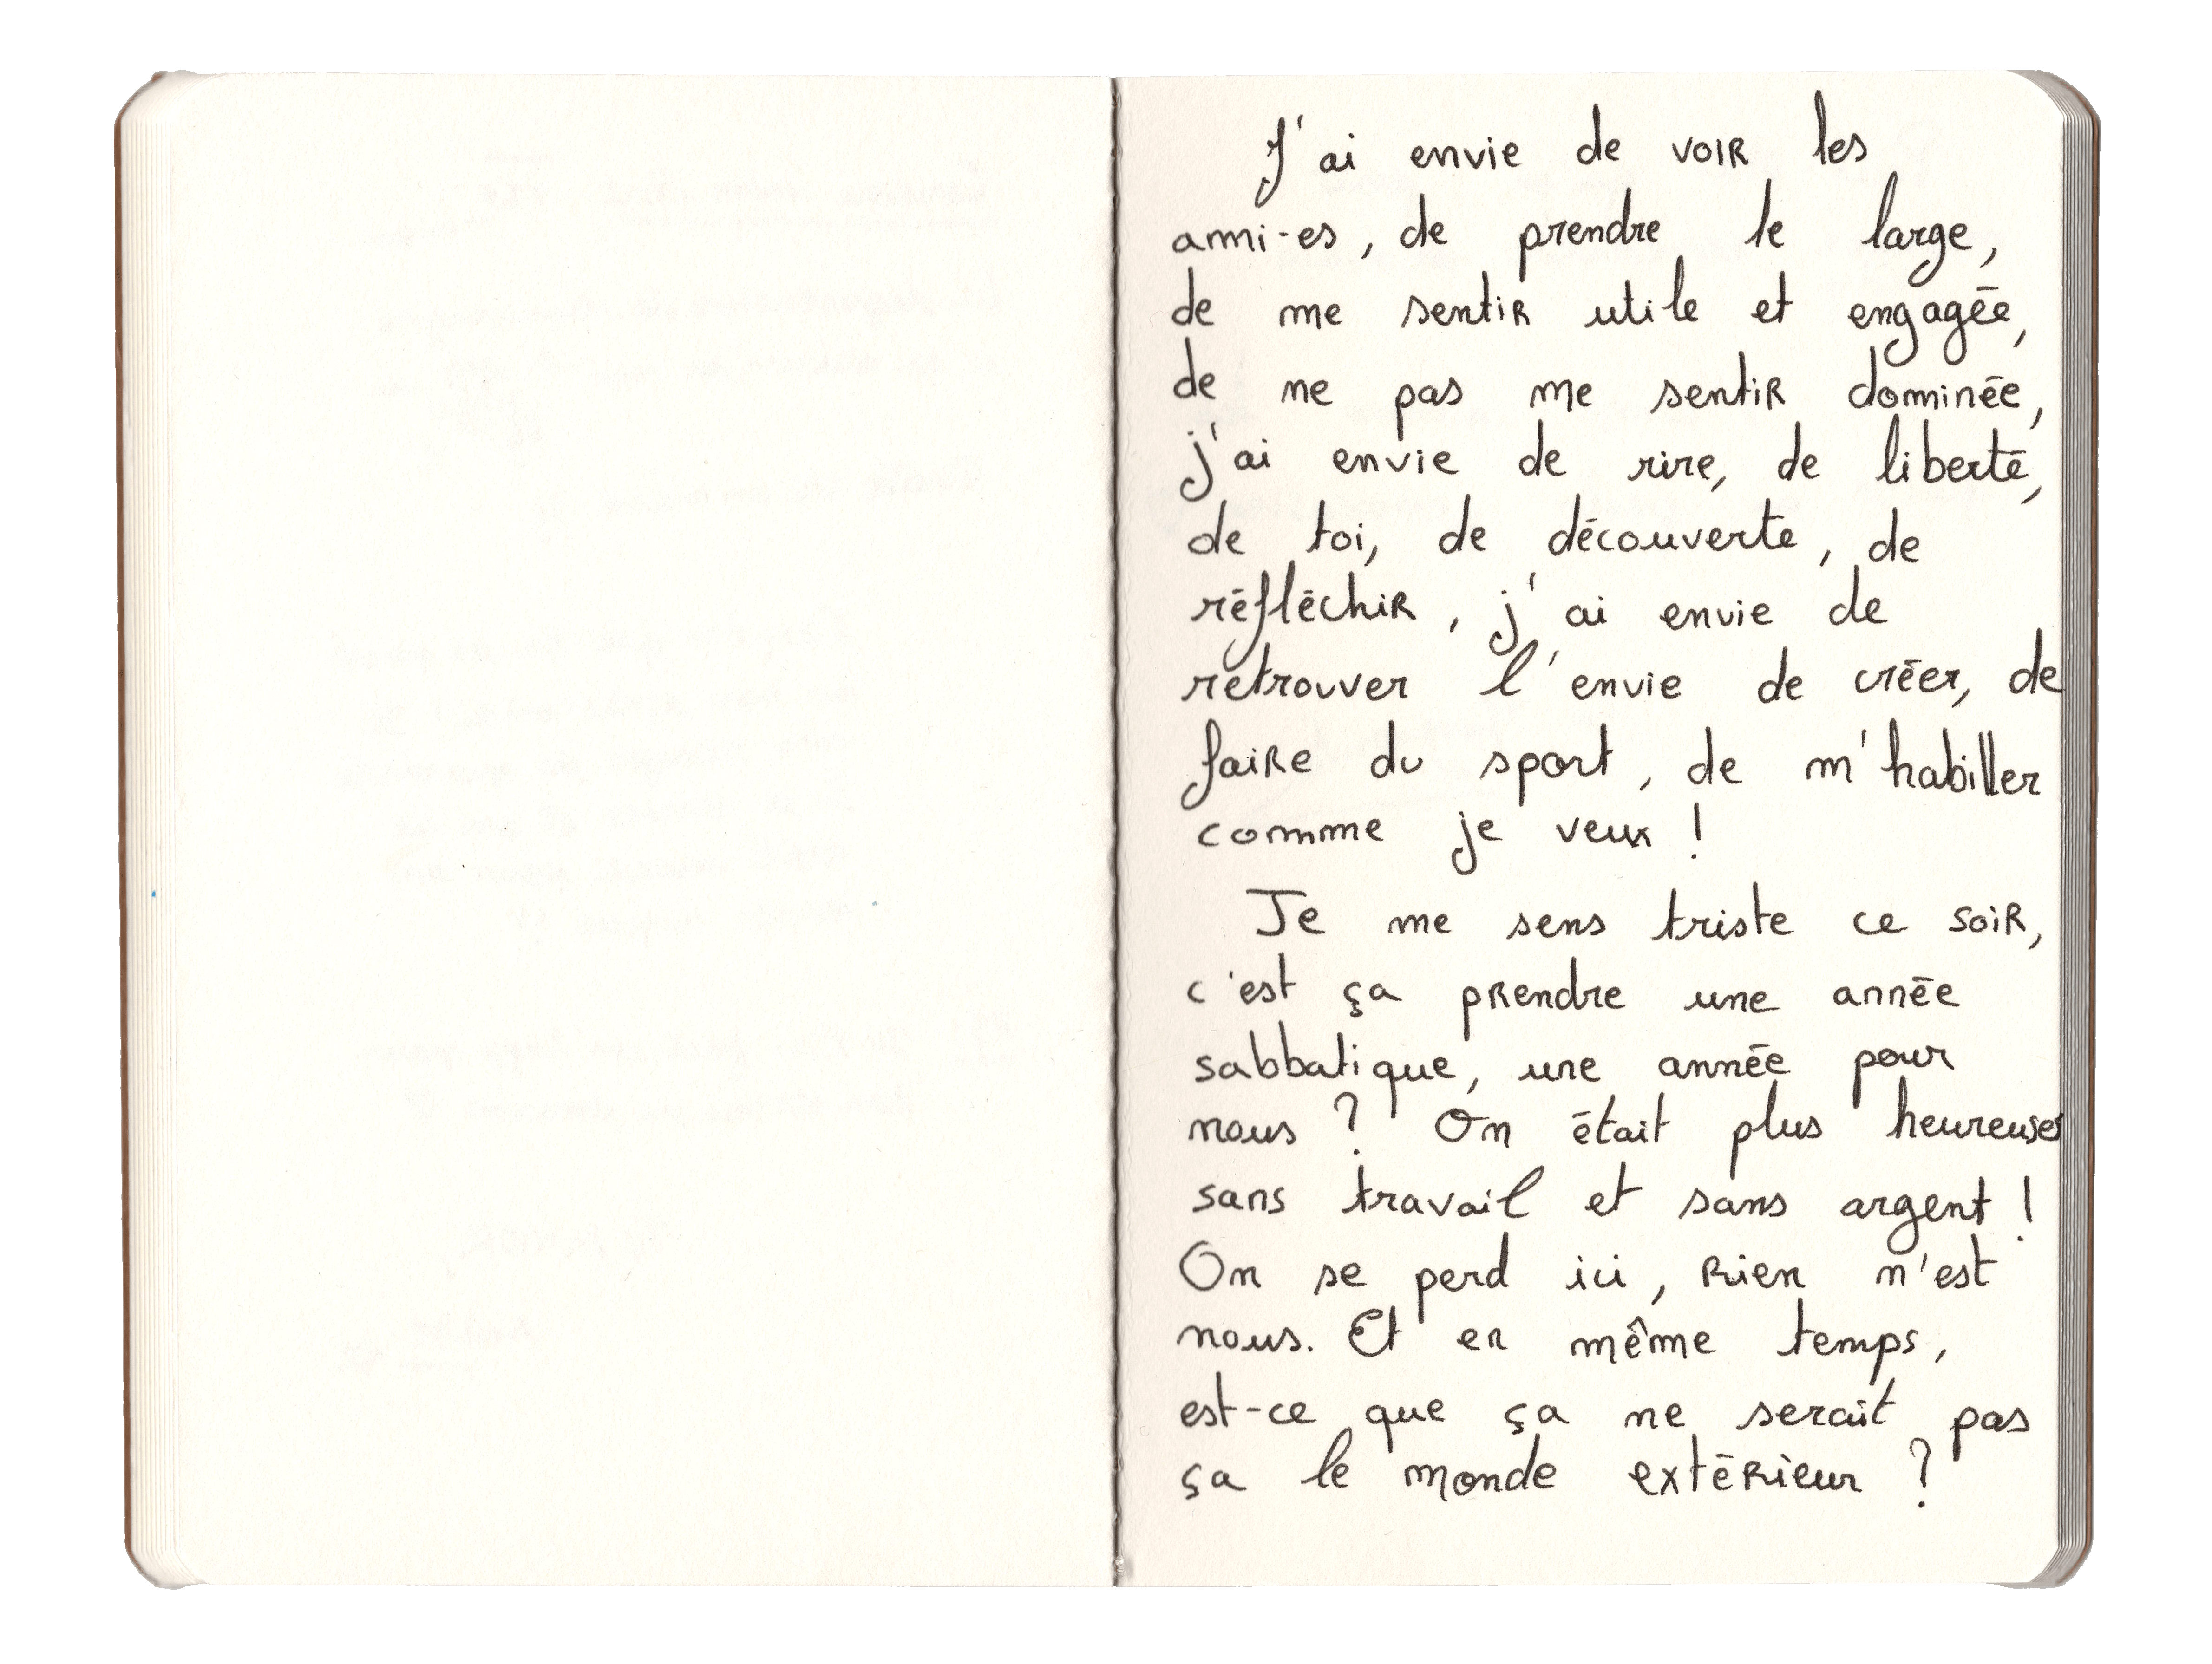 J'ai envie de voir les
ami-es, de prendre le large,
de me sentir utile et engagée,
de ne pas me sentir dominée,
j'ai envie de rire, de liberté,
de toi, de découverte, de
réfléchir, j'ai envie de
retrouver l'envie de créer, de
faire du sport, de m'habiller
comme je veux !
Je me sens triste ce soir,
c'est ça prendre une année
sabbatique, une année pour
nous ? On était plus heureuses
sans travail et sans argent !
On se perd ici, rien n'est
nous. Et en même temps,
est-ce que ça ne serait pas
ça le monde extérieur ?